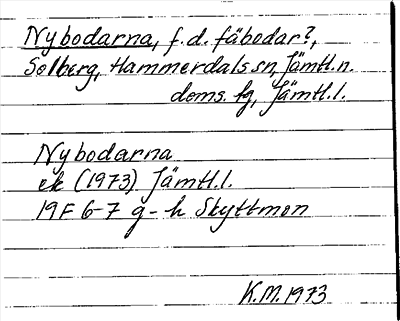 Nybodarna, f.d. fäbodar?,
Solberg, Hammerdals sn, Jämtl.n.
doms. fg, Jämtl.l.
Nybodarna
ek (1973) Jämtl.l.
19F 6-7 g-h Skyttmon
K.M. 1973